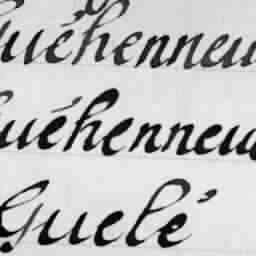 uéhenneu
uéhenneu
Guelé